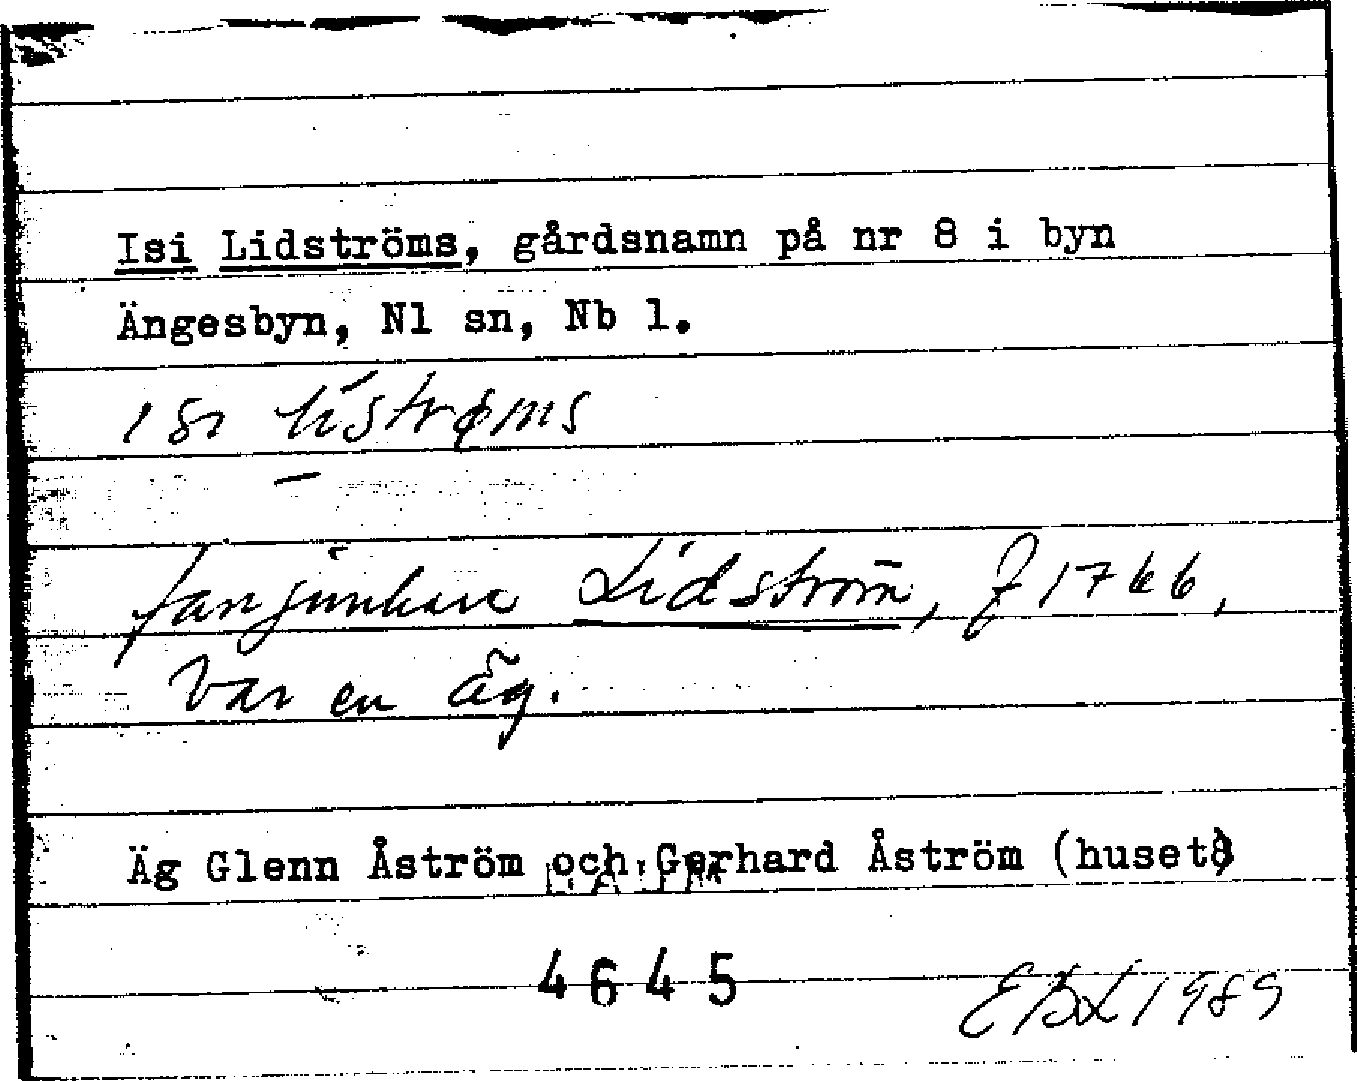 Isi Lidströms, gårdsnamn på nr 8 i byn
Ängesbyn, Nl sn, Nb l.
isi listrøms
fanjunkare Lidström, f 1766,
var en äg.
Äg Glenn Åström och Gerhard Åström (huset)
4645
EBL 1989